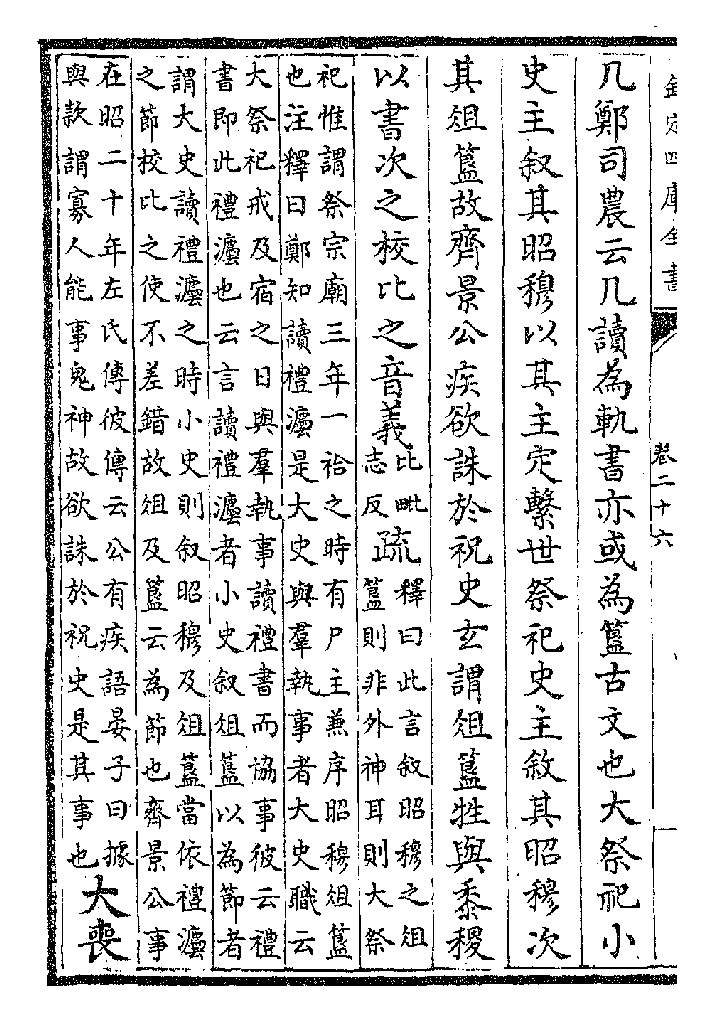 欽定四庫全書
卷二十六
几鄭司農云几讀為軌書亦或為簋古文也大祭祀小
史主叙其昭穆以其主定繫世祭祀史主敘其昭穆次
其俎簋故齊景公疾欲誅於祝史玄謂俎簋牲與黍稷
以書次之校比之音義比毗志反疏釋曰此言叙昭穆之俎簋則非外神耳則大祭
祀惟謂祭宗廟三年一祫之時有尸主兼序昭穆俎簋
也注釋曰鄭知讀禮灋是大史與羣執事者大史職云
大祭祀戒及宿之日與羣執事讀禮書而協事彼云禮
書即此禮灋也云言讀禮灋者小史叙俎簋以為節者
謂大史讀禮灋之時小史則叙昭穆及俎簋當依禮灋
之節校比之使不差錯故俎及簋云為節也齊景公事
在昭二十年左氏傳彼傳云公有疾語晏子曰據
與款謂寡人能事鬼神故欲誅於祝史是其事也大喪